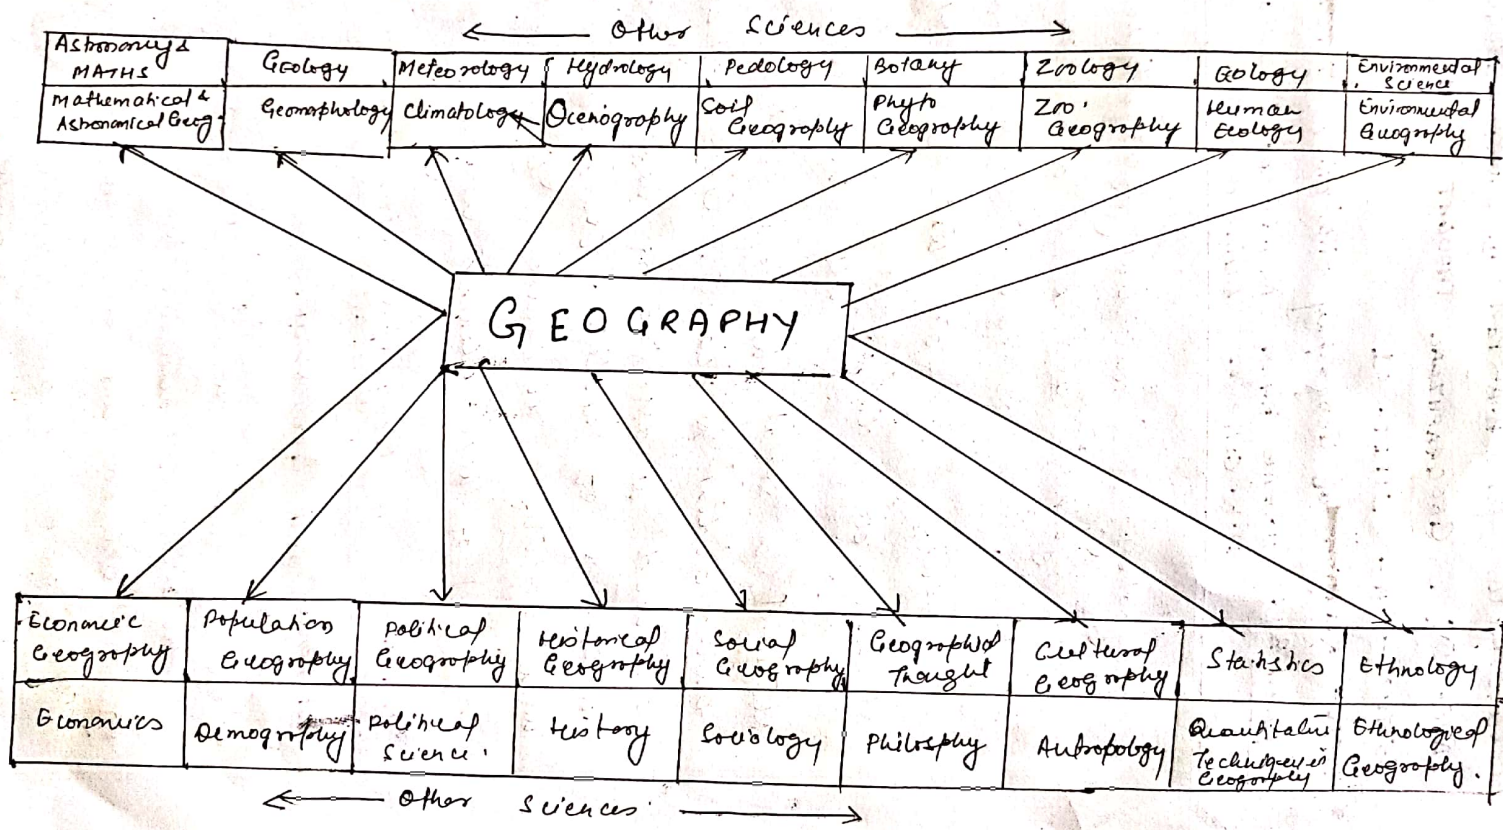 Other Sciences
Astronomy &
MATHS
Geology
Meteorology
Hydrology
Pedology
Botany
Zoology
Ecology
Environmental
Science
Mathematical &
Astronomical Geog.
Geomorphology
Climatology
Ocenography
Soil
Geography
Phyto
Geography
Zoo
Geography
Human
Ecology
Environmental
Geography
GEOGRAPHY
Economic
Geography
Population
Geography
Political
Geography
Historical
Geography
Social
Geography
Geographical
Thought
Cultural
Geography
Statistics
Ethnology
Economics
Demography
Political
Science.
History
Sociology
Philosphy
Antropology
Quantitative
Techniques in
Geography
Ethnological
Geography.
Other Sciences